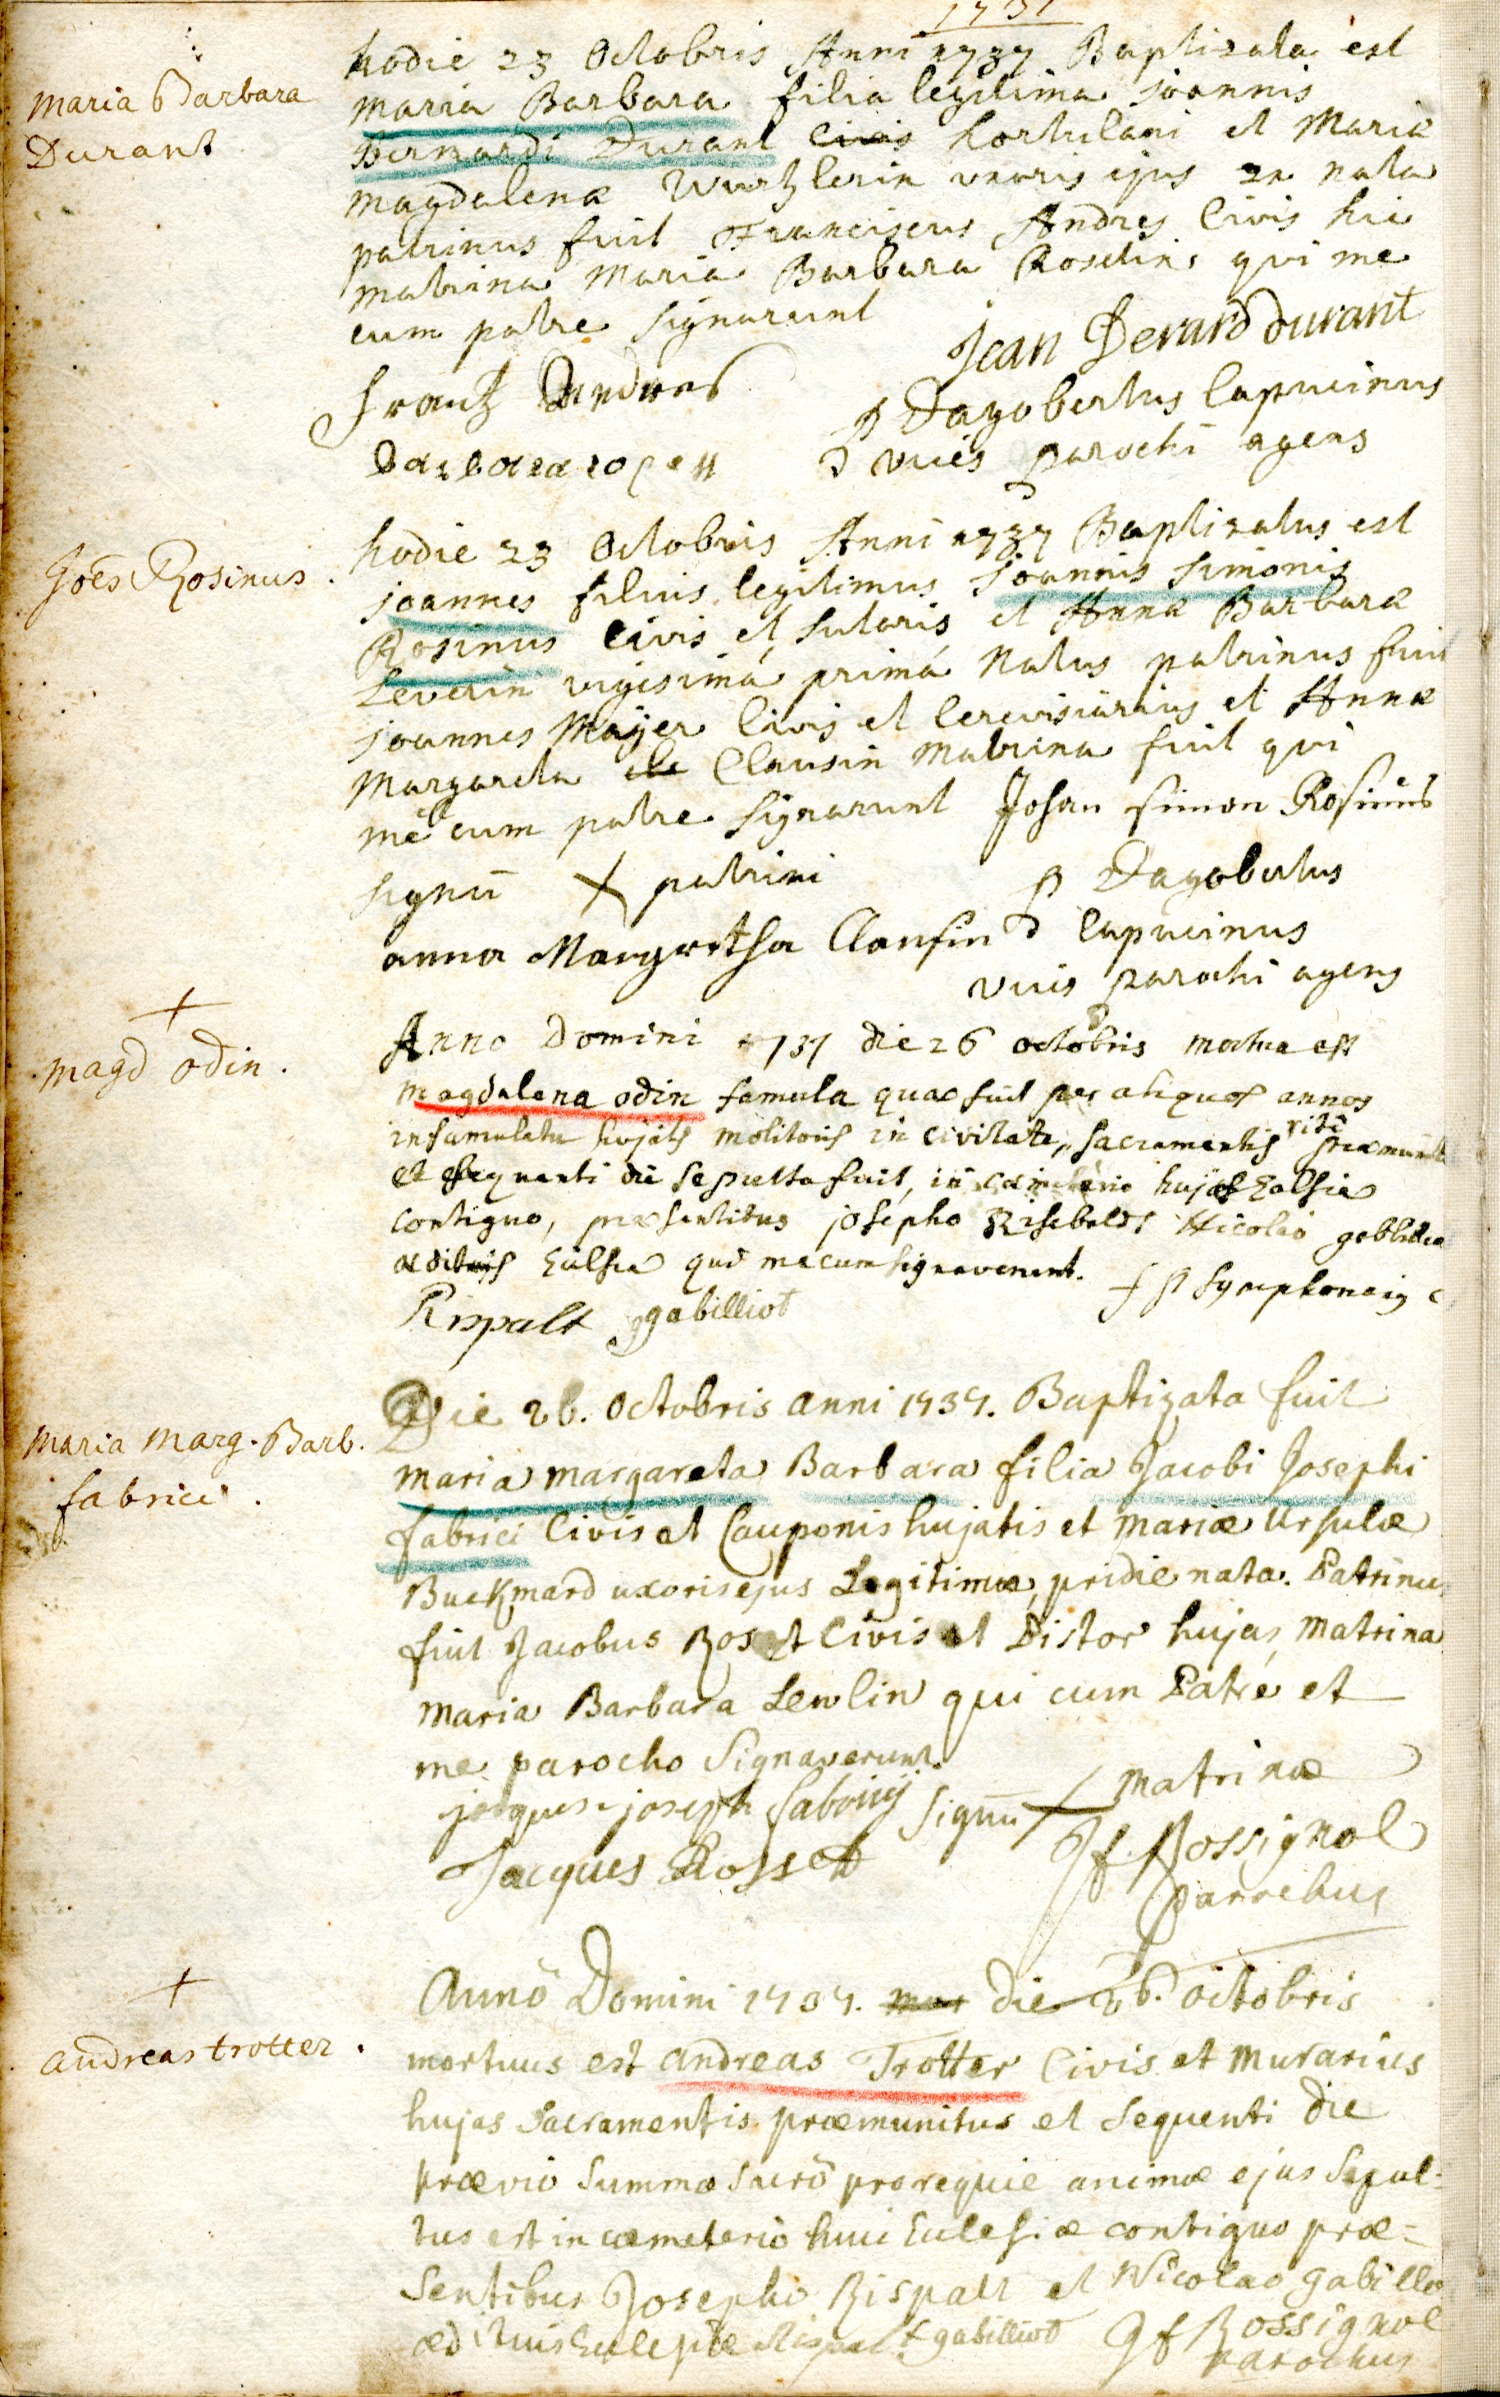 1737
Maria Barbara
Durant
hodie 23 Octobris Anni 1737 Baptizata est
Maria Barbara filia legitima joannis
Bernardi Durant civis hortulani et Mariæ
Magdalenæ Wurtzlerin uxoris ejus 22 nata
patrinus fuit Franciscus Andres Civis hic
matrina Maria Barbara Rosetin qui me
cum patre signarunt
Jean Berard Durant
Frantz Andres
P Dagobertus Capucinus
Barbara roset
vices parochi agens
Joēs Rosinus.
hodie 23 Octobris Anni 1737 Baptizatus est
joannes filius legitimus joannis simonis
Rosinus Civis et sutoris et Annæ Barbaræ
Leverin vigesimâ primâ natus patrinus fuit
joannes Mayer Civis et Cerevisiarius et Anna
Margareta Clausin Matrina fuit qui
me cum patre signarunt Johan simon Rosinus
signū + patrini
P Dagobertus
anna Margretha Clausin
Capucinus
vices parochi agens
+
magd odin.
Anno Domini 1737 die 26 octobris mortua est
Magdalena odin famula quæ fuit per aliquos annos
in famulatu hujatis molitoris in civitate, sacramentis ritè præmunita
et sequenti die sepulta fuit, in cœmiterio hujas Eccłsiæ
contiguo, præsentibus josepho Risebalds Nicolao gobbilliot
ædituis Ecclsiæ qui mecum signaverunt.
f P Symphoria c
Rispalt gabilliot
Maria Marg. Barb.
fabrici.
Die 26. Octobris anni 1737. Baptizata fuit
Maria Margareta Barbara filia Jacobi Josephi
fabrici Civis et Cauponis hujatis et Mariæ Ursulæ
Buckmard uxoris ejus Legitimæ, pridie nata. Patrinus
fuit Jacobus Roset Civis et Pistor hujas, Matrina
Maria Barbara Lewlin qui cum Patre et
me parocho signaverunt.
jacques joseph fabricy signū + Matrinæ
Jacques Rosset
J f Rossignol
parochus
+
andreas trotter.
Anno Domini 1737. die 26. octobris
mortuus est andreas Trotter Civis et Murarius
hujas sacramentis præmunitus et sequenti die
prævio summo sacro pro requie animæ ejus sepul-
tus est in cœmeterio huic Ecclesiæ contiguo præ-
sentibus Josepho Rispalt et Nicolao gabillo
ædituis Ecclesiæ Rispalt gabilliot
J f Rossignol
parochus